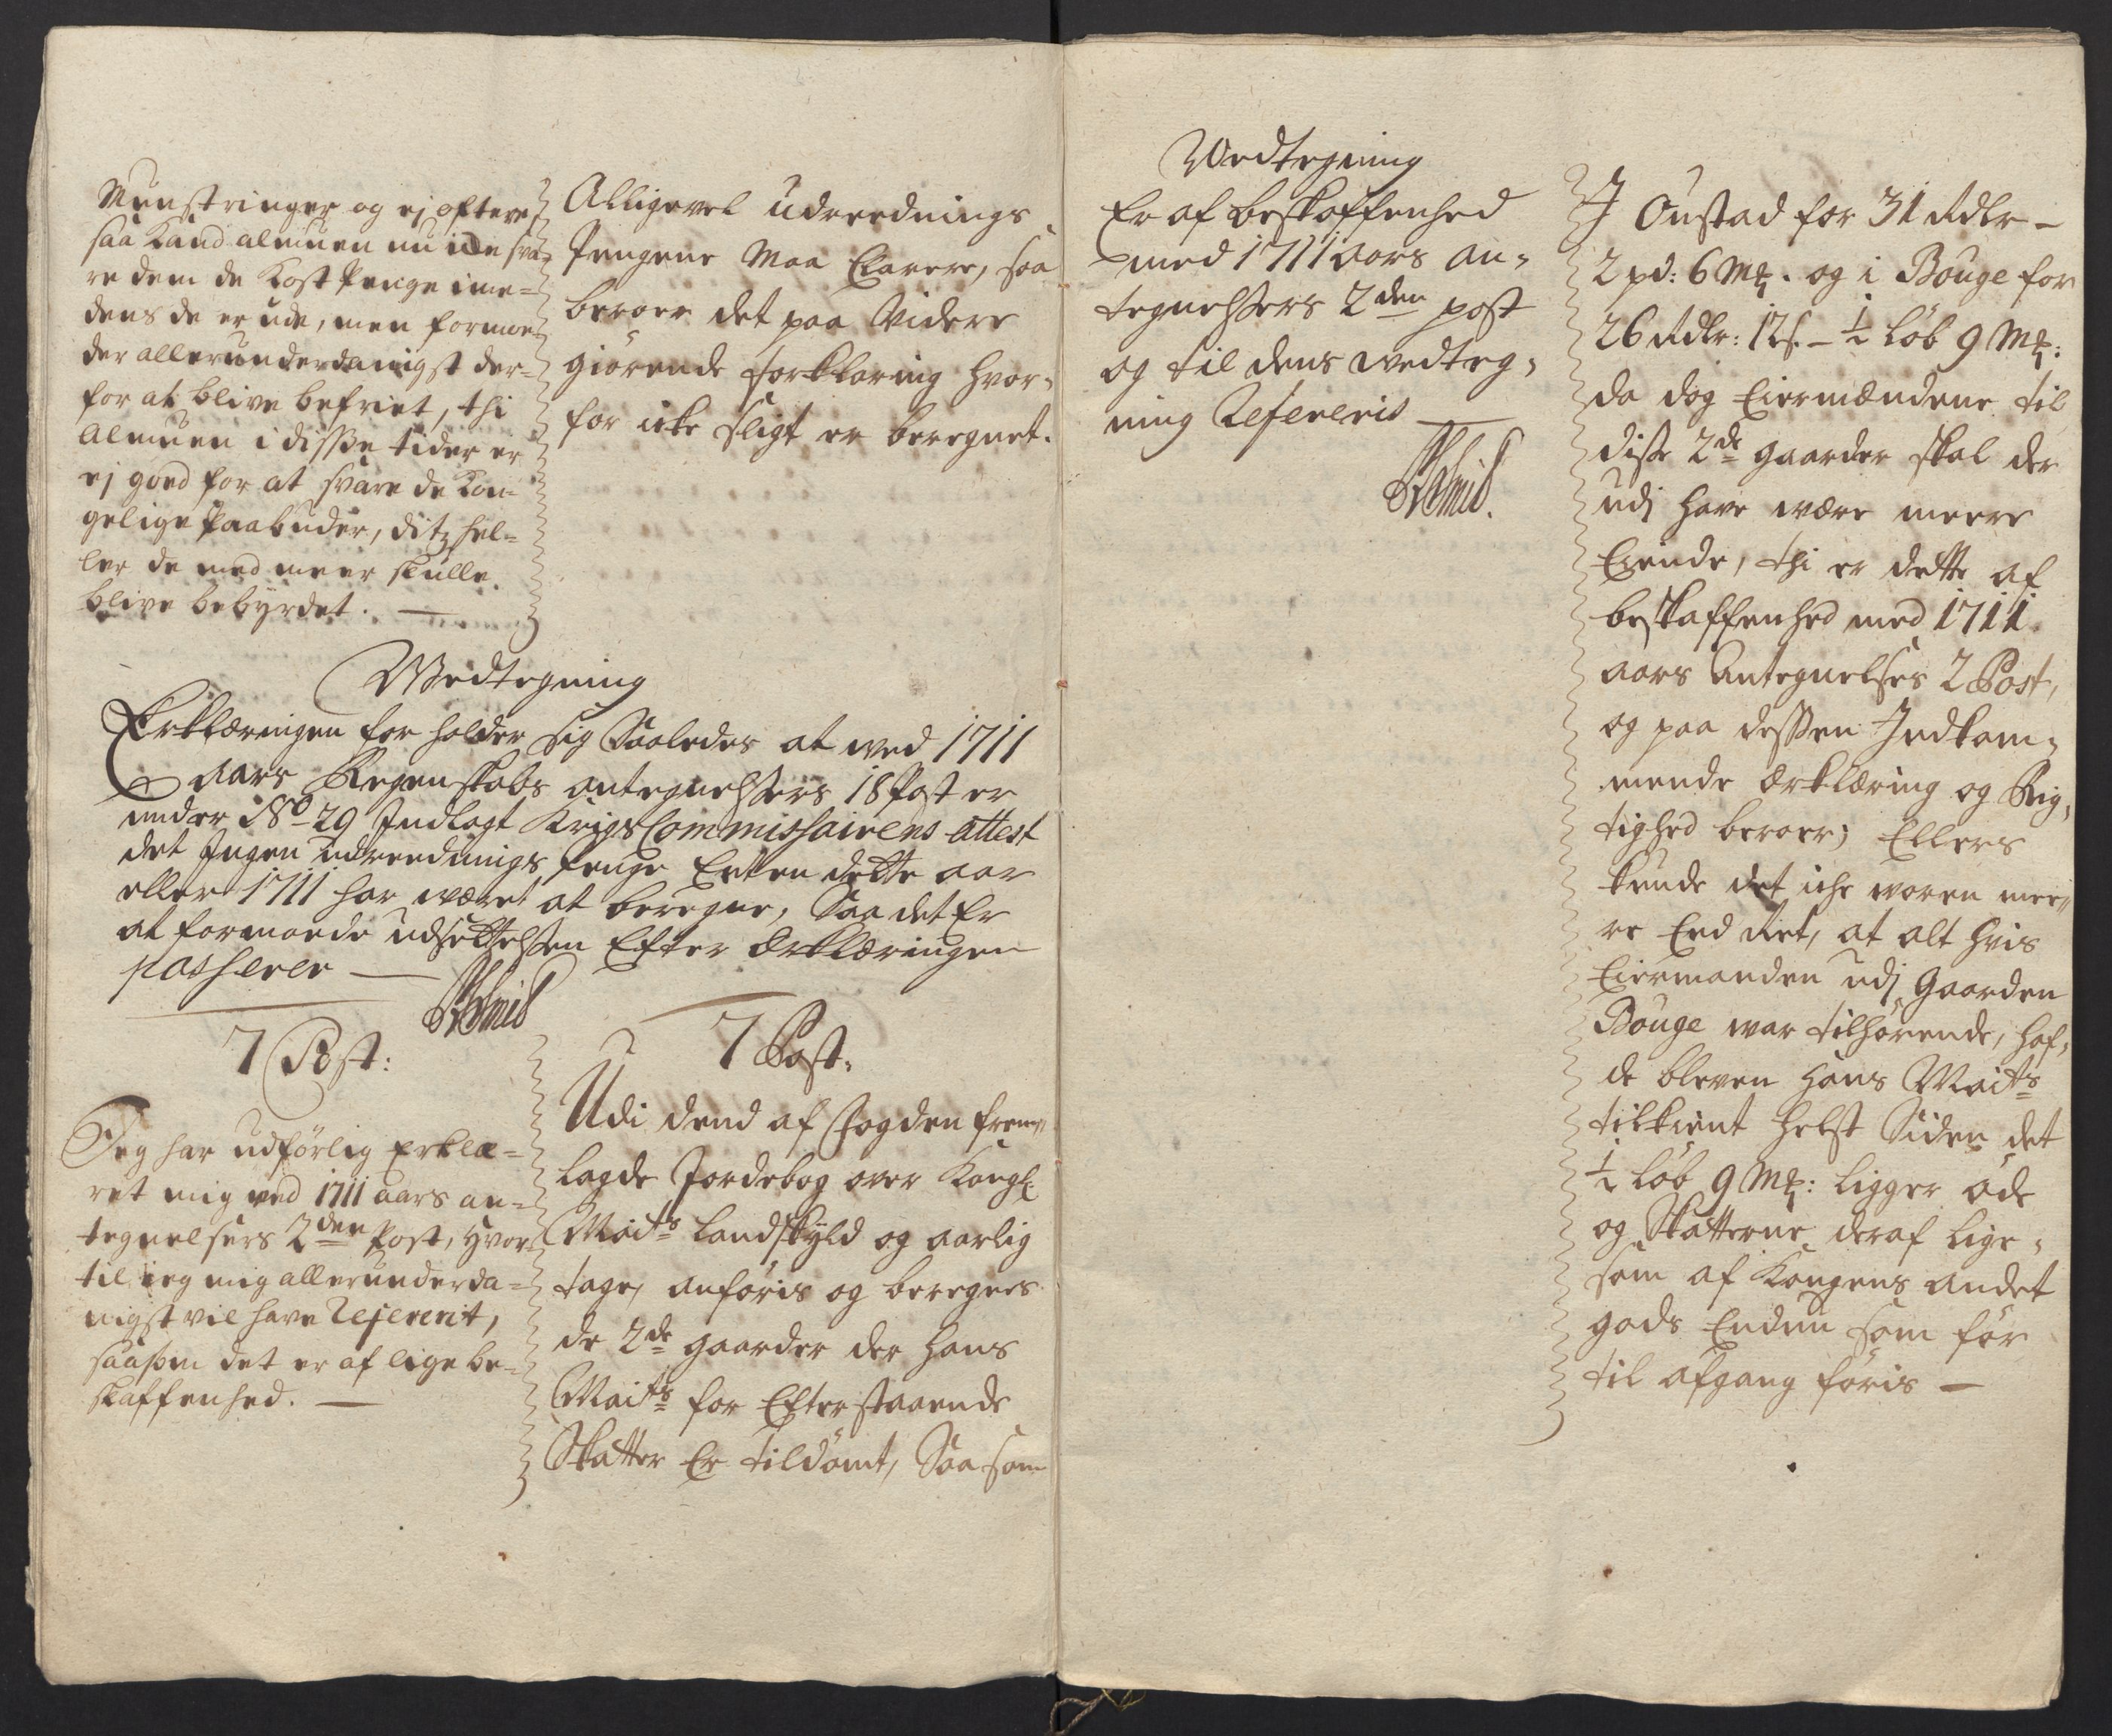 Munstringer og ej oftere,
saa kand almuen nu icke sva-
re dem de Kost Penge ime-
dens de er ude, men formoe-
der allerunderdanigst der-
for at blive befriet, thi
Almuen i disse tider er
ej goed for at svare de Kon-
gelige Paabuder, ditz hel-
ler de med meer skulle
blive bebyrdet. —
Alligevel udreednings
Pengene maa Clarere, saa
beroer det paa Videre
giörende forklaring hvor-
for icke sligt er beregnet.
Wedtegning
Erklæringen for holder sig Saaledes at wed 1711
aars Regenskabs antegnelsers 18 Post er
under No 29 Indlagt Krigs Commissairens attest
det Ingen udreednings penge Enten dette aar
eller 1711 har wæret at beregne, Saa det Er
at formoede udsettelsen Efter Erklæringen
passerer —
7 Post:
Jeg har udförlig Erklæ-
ret mig ved 1711 aars an-
tegnelsers 2den Post, hvor-
til ieg mig allerunderda-
nigst vil have Refererit,
saasom det er af lige be-
skaffenhed. —
7 Post.
Udi dend af Fogden frem-
lagde Jordebog over Kongl:
Maits Landskyld og aarlig
tage, anföris og beregnes
de 2de gaarder der Hans
Maits for Efterstaaende
Skatter Er tildömt, Saasom
Wedtegning
Er af beskaffenhed
med 1711 aars an-
tegnelsers 2den post
og til dens wedteg-
ning Refereris —
J Oustad for 31 Rdlr —
2 pd: 6 Mk. og i Bouge for
26 Rdlr: 12 s. — ½ löb 9 Mk:
da dog Eiermændene til
disse 2de gaarder skal der
udj have være meere
Eiende, thi er dette af
beskaffenhed med 1711
aars Antegnelses 2 Post,
og paa dessen Indkom-
mende Erklæring og Rig-
tighed beroer; Ellers
kunde det iche woren mee-
re End Ret, at alt hvis
Eiermanden udj Gaarden
Bouge war tilhörende, haf-
de bleven Hans Maits
tilkient helst Siden det
½ löb 9 Mk: ligger öde
og Skatterne deraf lige-
som af Kongens andet
gods Endnu som för
til afgang föris —